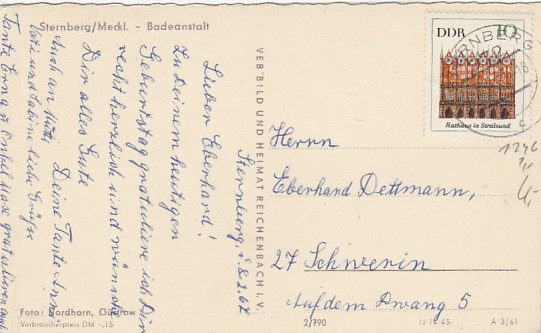 Sternberg/Meckl. - Badeanstalt
Sternberg d. 8.2.67
Lieber Eberhard!
Zu Deinem heutigen
Geburtstag gratuliere ich Dir
recht herzlich und wünsche
Dir alles Gute
Auch an Mutti,
und Sabine liebe Grüße
Deine Tante Anni
Tante Erna u. Onkel Max gratulieren auch
Foto: Nordhorn, Güstrow
Verbraucherpreis DM -,15
VEB BILD UND HEIMAT REICHENBACH i. V.
2/790
IV. 14. 45.
A 3/61
DDR
10
Rathaus in Stralsund
STERNBERG
c
Herrn
Eberhard Dettmann,
27 Schwerin
Auf dem Dwang 5
1246